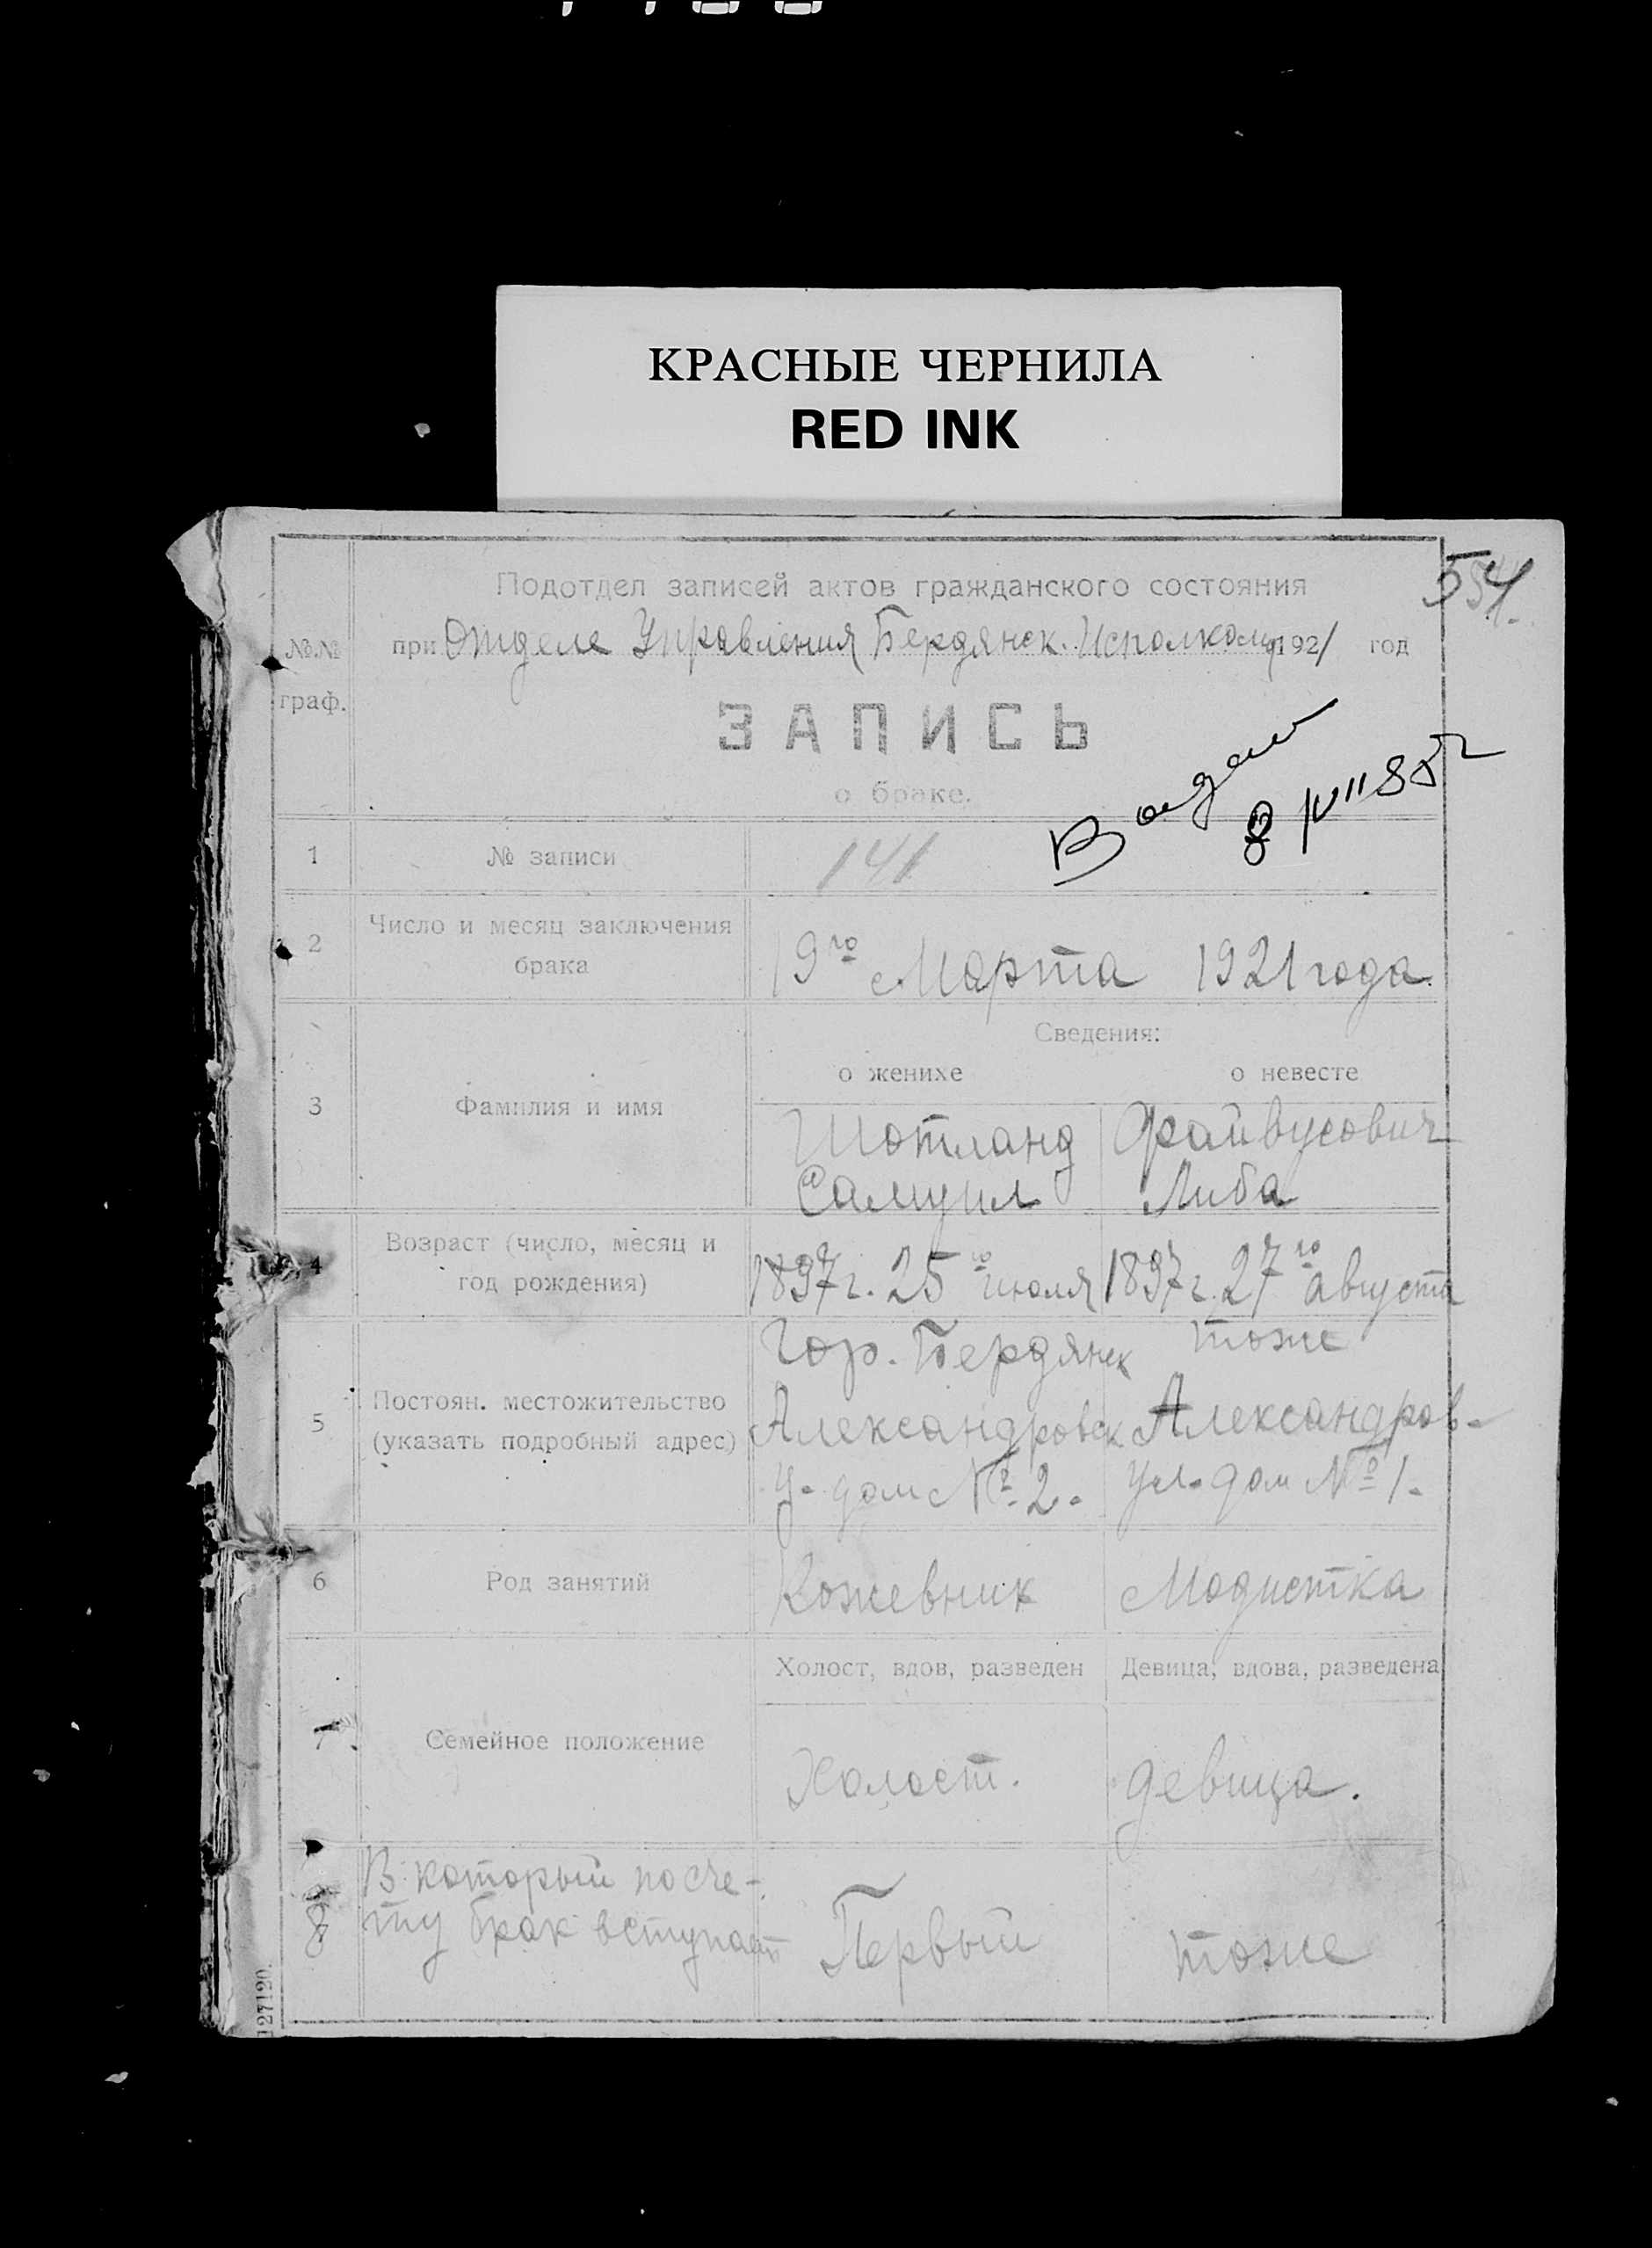 КРАСНЫЕ ЧЕРНИЛА
RED INK
Подотдел записей актов гражданского состояния
№№ граф.
при Отделе Управления Бердянск. Исполкома 1921 год
ЗАПИСЬ
о браке.
1 № записи 141
2 Число и месяц заключения брака
19го Марта 1921 года.
Сведения:
о женихе о невесте
3 Фамилия и имя
Шотланд Файвусович
Самуил Либа
4 Возраст (число, месяц и год рождения)
1897 г. 25го июля 1897 г. 27го августа
5 Постоян. местожительство (указать подробный адрес)
Гор. Бердянск тоже
Александровск Александров-
у. дом № 2. ул. дом № 1.
6 Род занятий Кожевник Модистка
Холост, вдов, разведен Девица, вдова, разведена
7 Семейное положение Холост. девица.
8 В который по сче-
ту брак вступает Первый тоже
127120.